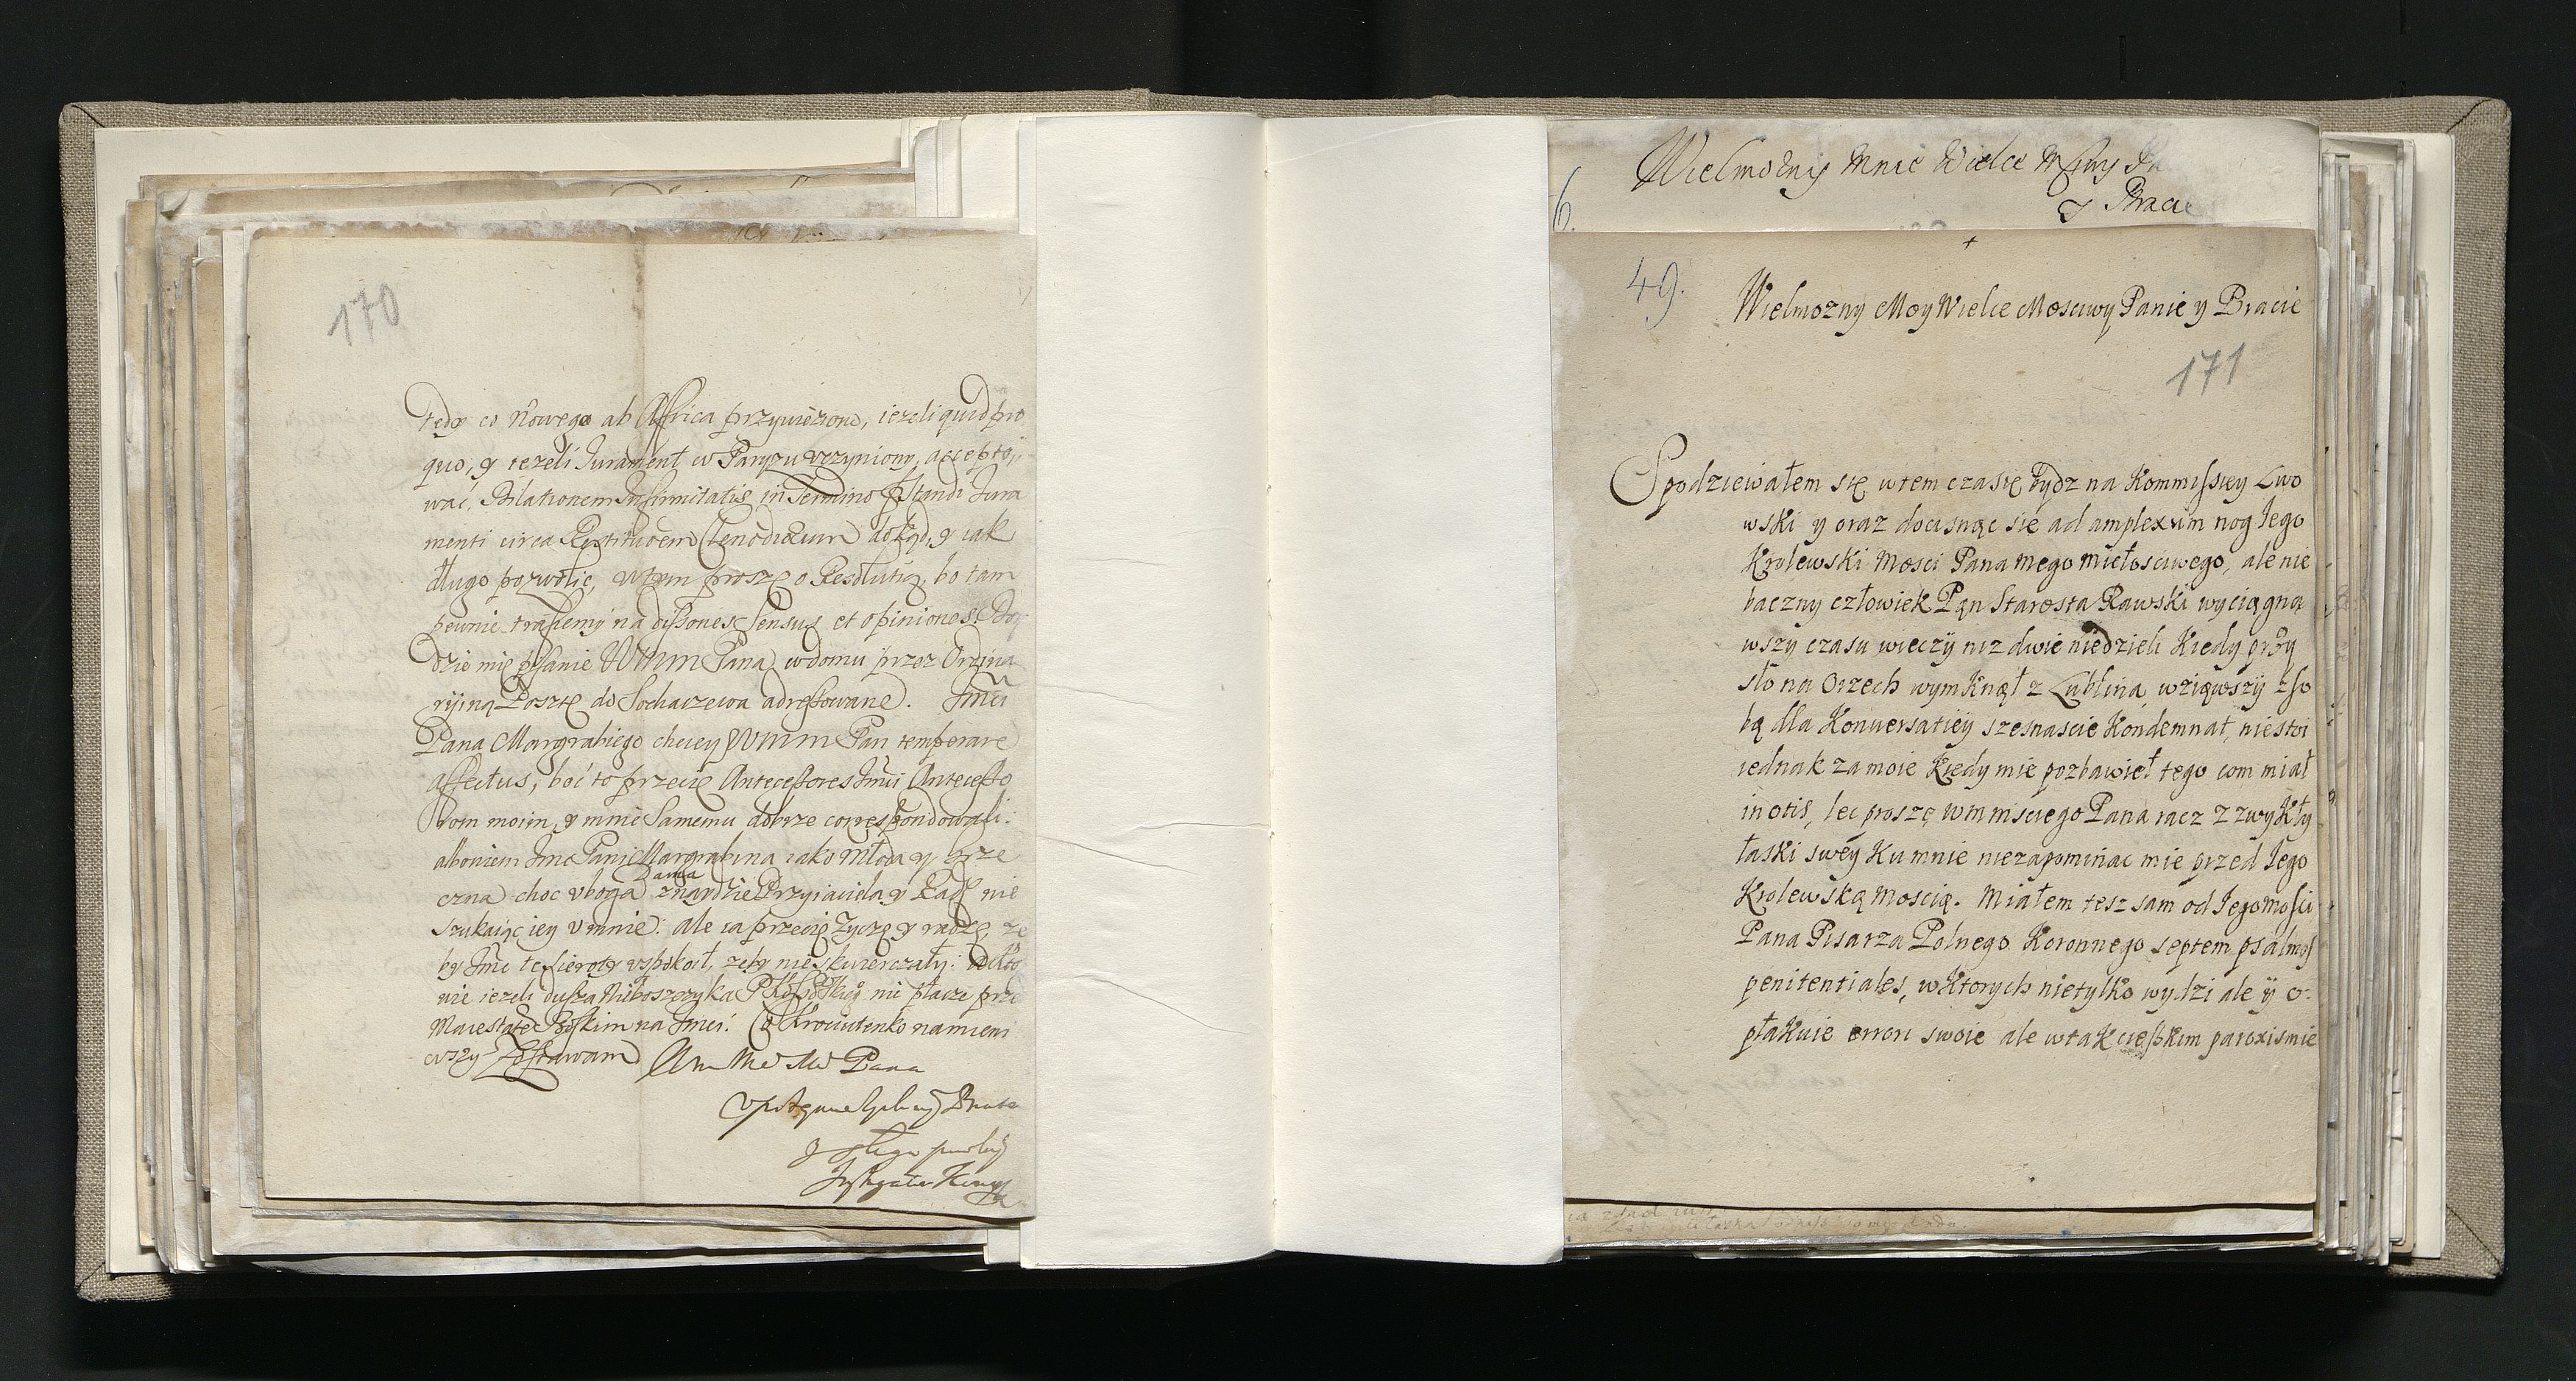 170
tedy co nowego ab Africa przywieziono, iezeli quid pro
quo, y iezeli Jurament w Paryzu vczyniony, accepto,,
wać, Dilationem Infirmitatis in Termino Jura
menti circa Clenodiorum dokąd, y iak
długo pozwolic, wtym proszę o Resolutią, bo tam
pewnie trafiemy na dissones Sensus et opiniones. Doy
dzie mię pisanie WMM Pana w domu przez Ordina
ryiną Posztę do Sochaczewa adressowane. Jmci
Pana Margrabiego chciey WMM Pan temperare
affectus, boć to przecię Antecessores Jmci Antecesso
rom moim, y mnie Samemu dobrze correspondowali:
alboniem Jmc Pani Margrabina iako młoda y grze
czna choc vboga znaydzie Przyiaciela y Radę nie
szukaiąc iey v mnie: ale ia przecię zyczę y radzę, ze
by Jmc te sieroty vspokoił, zeby nie skwierczały:
wie iezeli dusza Nieboszczyka nie płacze prze
Maiestatem Boskim na Jmci! Co krociutenko namieni
wszy Zostawam Pana
Brat
y sługa
49.
Wielmozny Moy Wielce Mosciwy Panie y Bracie
171
Spodziewałem się wtem czasię bydz na Kommissiey Lwo
wski y oraz docisnąc się ad amplexum nog Jego
Krolewski Mosci Pana mego miełosciwego, ale nie
baczny człowiek Pan Starosta Rawski wyciągną
wszy czasu wieczÿ niz dwie niedzieli Kiedy przy
sło na Orzech wymKnął z Lublina, wziąwszÿ z so
bą dla Konuersatiey szesnascie Kondemnat, niestoi
iednak za moie Kiedy mie pozbawieł tego com miał
in otis, lec proszę wm msciego Pana racz z zwyKły
łaski swey Ku mnie niezapominac mie przed Jego
Krolewską Moscią. Miałem tesz sam od Jegomosci
Pana Pisarza Polnego Koronnego septem psalmos
penitentiales, wKtorych nietylko wydzi ale ÿ o-
płaKuie errori swoie ale w tak cięszkim paroxismie
6.
Wielmozny Mnie Wielce
y Bracie